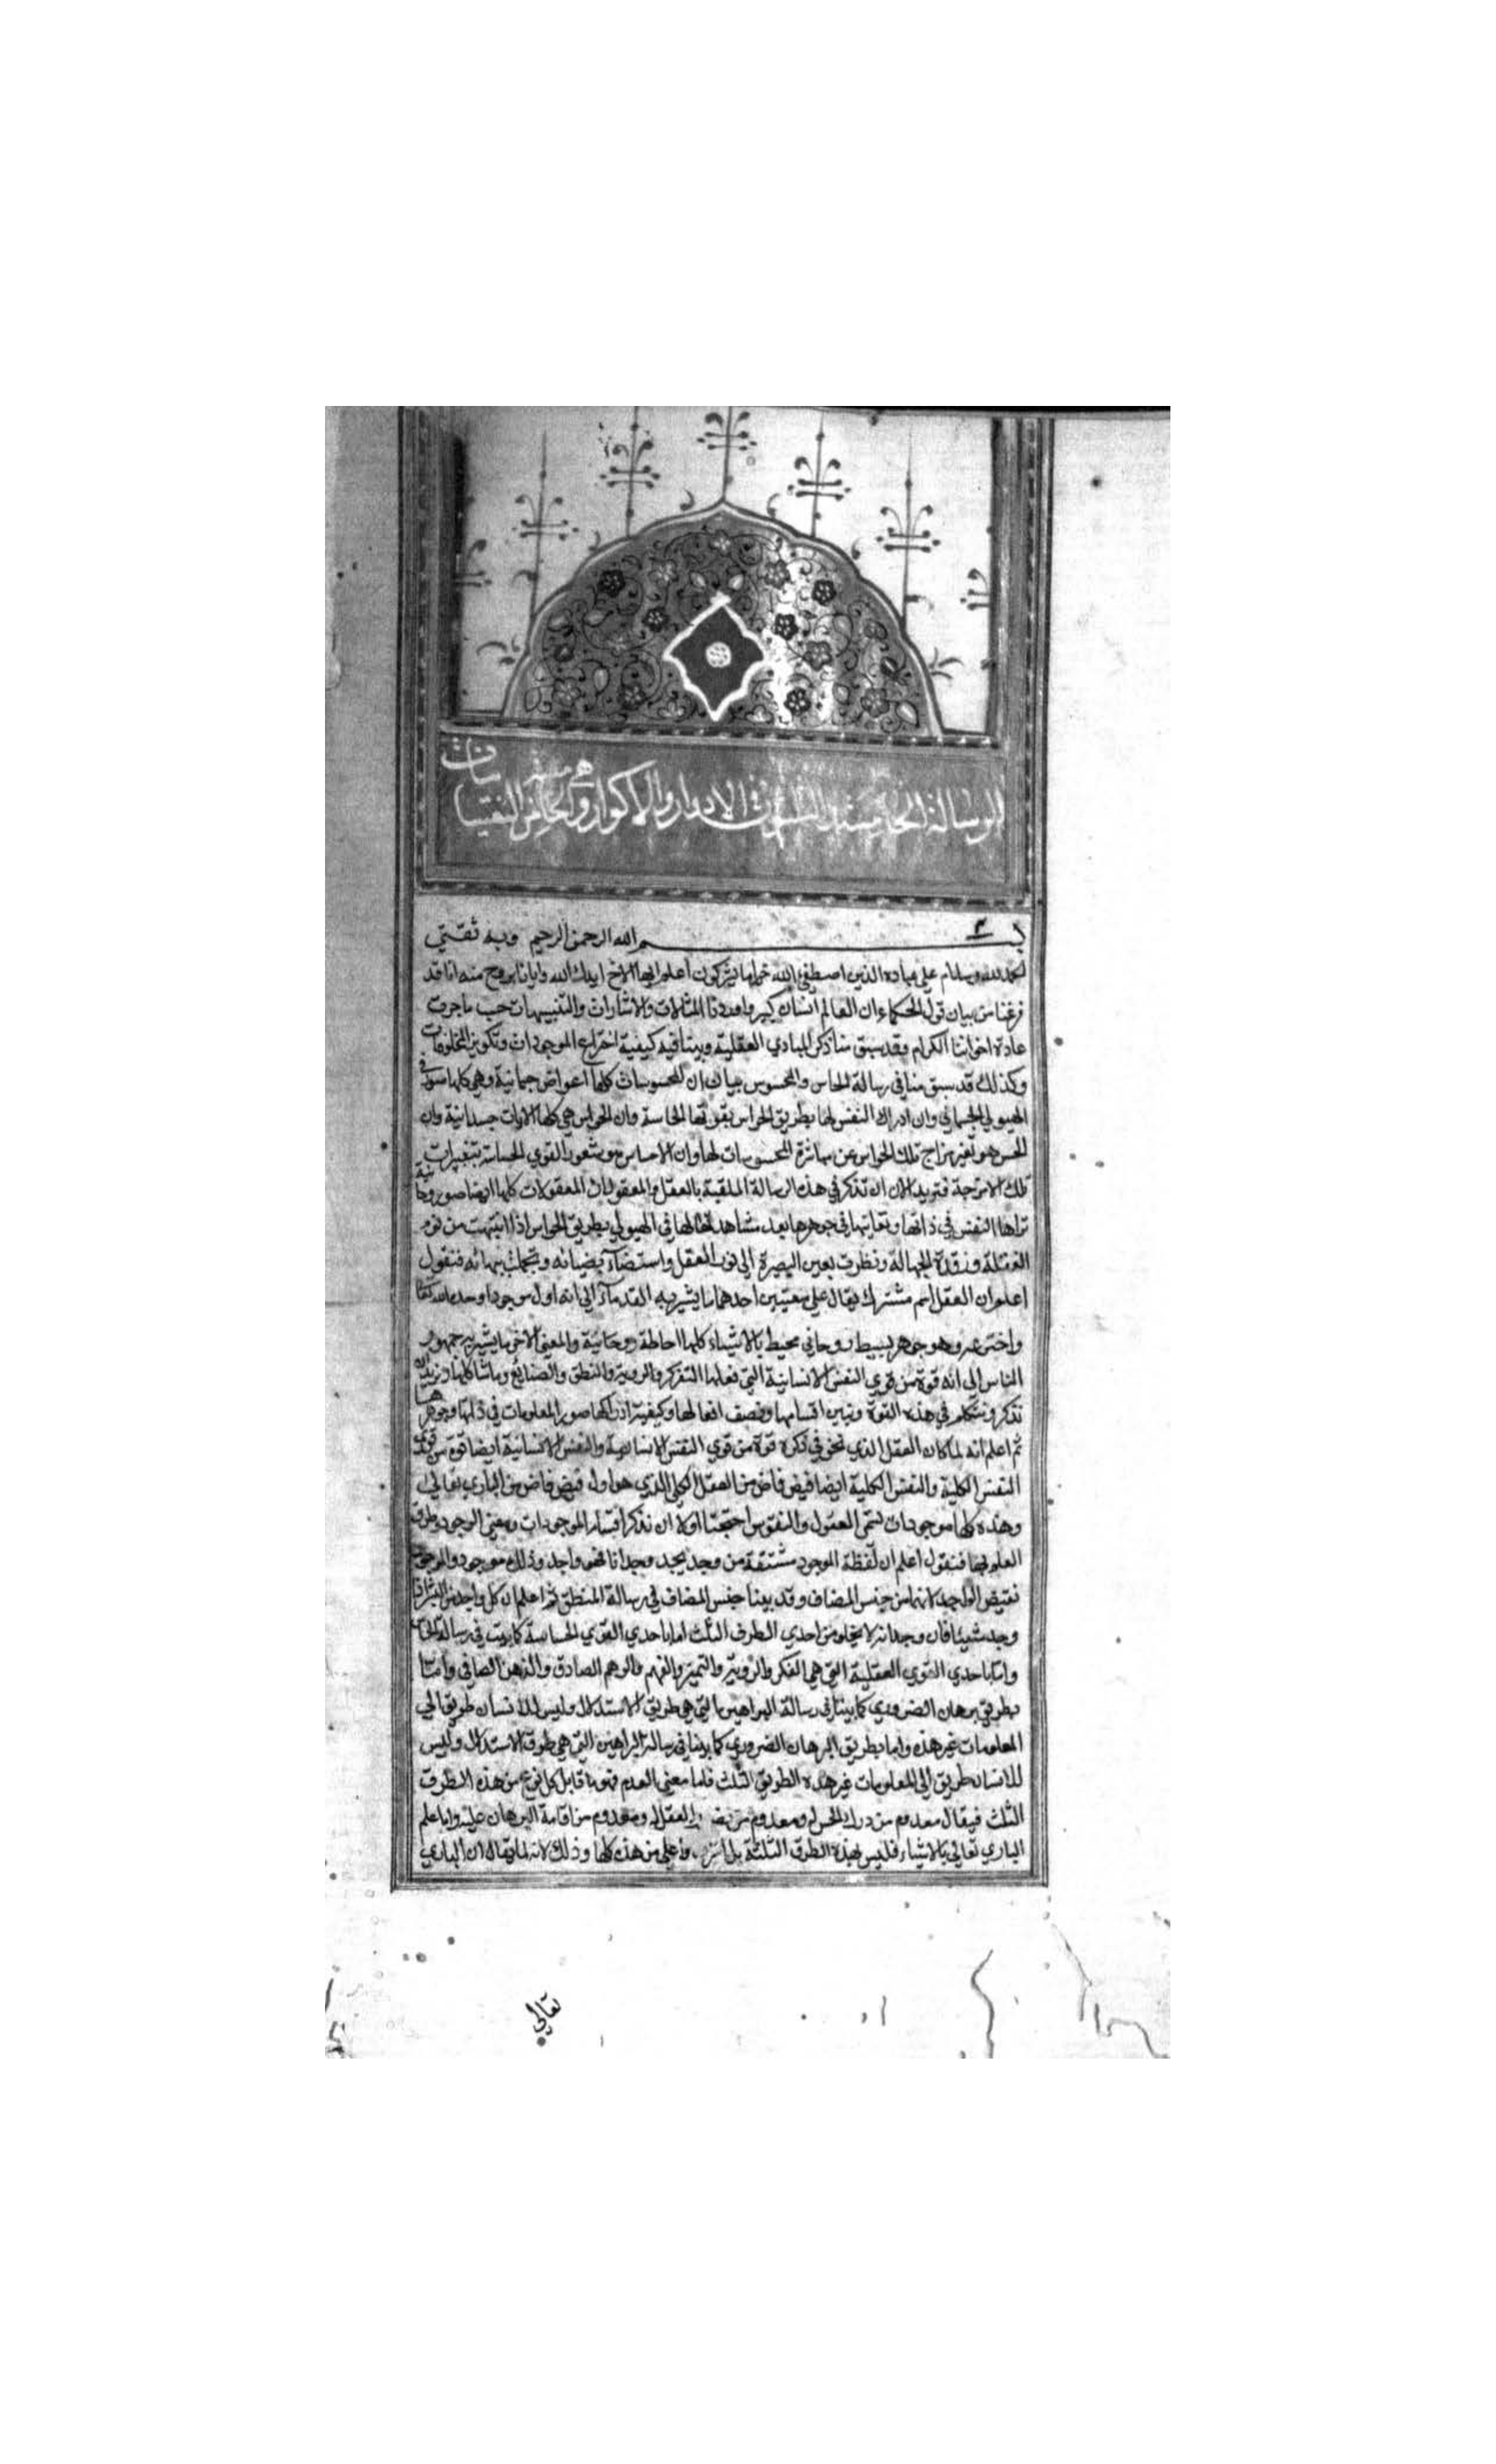 الرسالة الخامسة والثلثون في الادوار والاكوار وهي الخامس عشر النفسانيات
بسم الله الرحمن الرحيم وبه ثقتي
الحمد لله وسلام علي عباده الذين اصطفي الله خير اما يشركون أعلم ايها الاخ ايدك الله وايانا بروح منه انا قد
فرغنا من بيان قول الحكماء ان العالم انسان كبير واوردنا المثالات والاشارات والتنبيهات حسب ما جرت
عادة اخواننا الكرام وقد سبق منا ذكر المبادي العقلية وبينا فيه كيفية اختراع الموجودات وتكوين المخلوقات
وكذلك قد سبق منا في رسالة الحاس والمحسوس بيان ان المحسوسات كلها اعراض جسمانية وهي كلها صور في
الهيولي الجسماني وان ادراك النفس لها بطريق الحواس بقوتها الحاسة وان الحواس هي كلها الات جسدانية وان
الحس هو تغير مزاج تلك الحواس عن مباشرة المحسوسات لها وان الاحساس هو شعور القوي الحساسة بتغييرات
تلك الامزجة فنريد الان ان نذكر في هذه الرسالة الملقبة بالعقل والمعقول ان المعقولات كلها ايضا صور روحانية
تراها النفس في ذاتها وتعاينها في جوهرها بعد مشاهدتها لها في الهيولي بطريق الحواس اذا انتبهت من نوم
الغفلة ورقدة الجهالة ونظرت بعين البصيرة الي نور العقل واستضآءت بضيائه وتجلت ببهائه فنقول
اعلم ان العقل اسم مشترك يقال علي معنيين احدهما ما يشير به القدماء الي انه اول موجود اوجده الله تعالي
واخترعه وهو جوهر بسيط روحاني محيط بالاشياء كلها احاطة روحانية والمعني الاخر ما يشير به جمهور
الناس الي انه قوة من قوي النفس الانسانية التي فعلها التفكر والروية والنطق والصنائع وما شاكلها ونريد ان
نذكر ونتكلم في هذه القوة ونبين اقسامها ونصف افعالها وكيفية ادراكها صور المعلومات في ذاتها وجوهرها
ثم اعلم انه لما كان العقل الذي نحن في ذكره قوة من قوي النفس الانسانية والنفس الانسانية ايضا قوة من قوي
النفس الكلية والنفس الكلية ايضا فيض فاض من العقل الكلي الذي هو اول فيض فاض من الباري تعالي
وهذه كلها موجودات تسمي العقول والنفوس احتجنا اولا ان نذكر اقسام الموجودات ومعني الوجود وطرق
العلم بها فنقول أعلم ان لفظة الموجود مشتقة من وجد يجد وجدانا فهو واجد وذلك موجود والموجود
نقيض الواجد لانهما من جنس المضاف وقد بينا جنس المضاف في رسالة المنطق ثم اعلم ان كل واجد من البشر اذا
وجد شيئا فان وجدانه لا يخلو من احدي الطرق الثلث اما باحدي القوي الحساسة كما بينت في رسالة الحاس
واما باحدي القوي العقلية التي هي الفكر والروية والتميز والفهم والوهم الصادق والذهن الصافي واما
بطريق برهان الضروري كما بينا في رسالة البراهين التي هي طريق الاستدلال وليس للانسان طريق الي
المعلومات غير هذه واما بطريق البرهان الضروري كما بينا في رسالة البراهين التي هي طرق الاستدلال وليس
للانسان طريق الي المعلومات غير هذه الطرق الثلث فاما معني العدم فهو ما قابل كل نوع من هذه الطرق
الثلث فيقال معدوم من درك الحس ومعدوم من العقل ومعدوم من اقامة البرهان عليه واما علم
الباري تعالي بالاشياء فليس بهذه الطرق الثلثة بل اشرف واعلي من هذه كلها وذلك لانه لما يقال ان الباري
تعالي